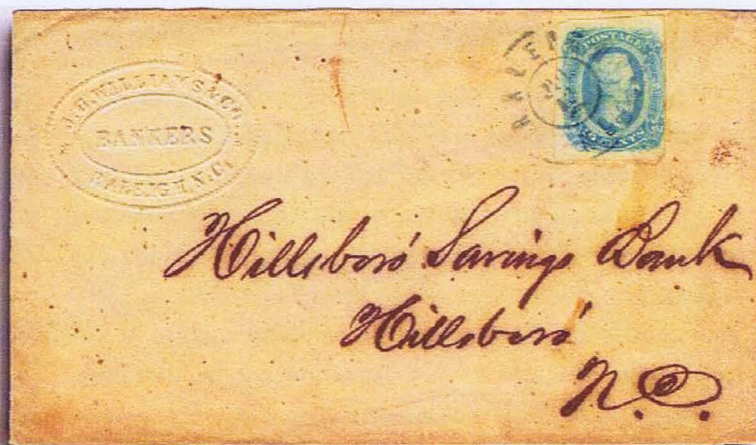 J.H. WILLIAMS & CO.
BANKERS
RALEIGH, N.C.
POSTAGE
CENTS
Hillsboró Savings Bank
Hillsboró
N.C.